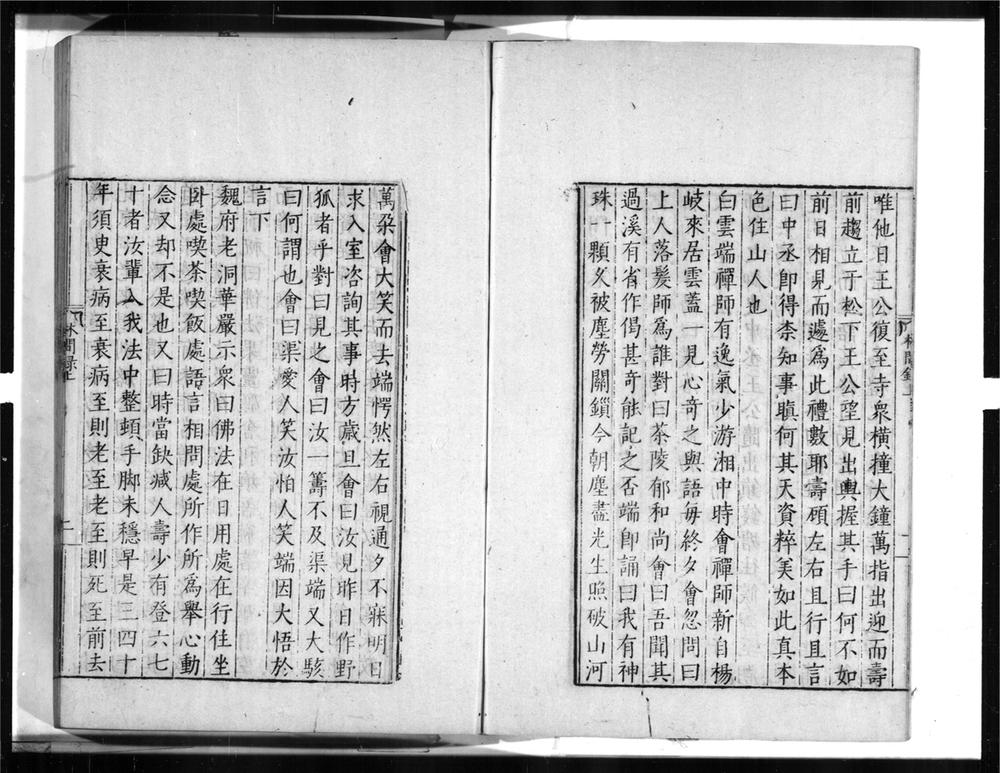 唯他日王公復至寺衆橫撞大鐘萬指出迎而壽
前趨立于松下王公望見出輿握其手曰何不如
前日相見而遽爲此禮數耶壽碩左右且行且言
曰中丞卽得柰知事瞋何其天資粹美如此真本
色住山人也
白雲端禪師有逸氣少游湘中時會禪師新自楊
岐來居雲蓋一見心奇之與語每終夕會忽問曰
上人落髮師爲誰對曰茶陵郁和尚會曰吾聞其
過溪有省作偈甚奇能記之否端卽誦曰我有神
珠一顆久被塵勞關鎖今朝塵盡光生照破山河
林間錄
一
萬朶會大笑而去端愕然左右視通夕不寐明日
求入室咨詢其事時方歲旦會曰汝見昨日作野
狐者乎對曰見之會曰汝一籌不及渠端又大駭
曰何謂也會曰渠愛人笑汝怕人笑端因大悟於
言下
魏府老洞華嚴示衆曰佛法在日用處在行住坐
臥處喫茶喫飯處語言相問處所作所爲舉心動
念又却不是也又曰時當缺減人壽少有登六七
十者汝輩入我法中整頓手脚未穩早是三四十
年須史衰病至衰病至則老至老至則死至前去
林間錄上
二